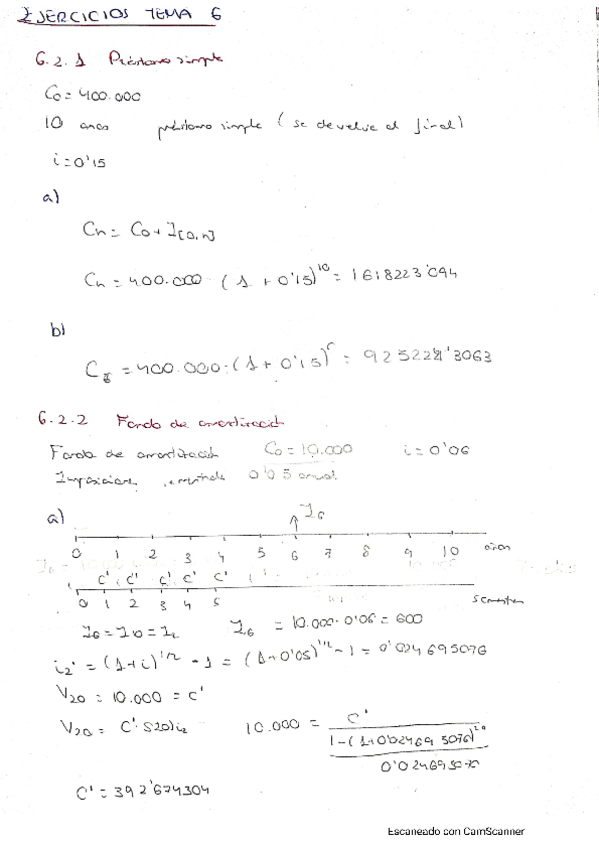 EJERCICIOS TEMA 6
6.2.1 Préstamo simple
C0 = 400.000
10 años préstamo simple (se devuelve al final)
i = 0'15
a)
Cn = C0 + I[0,n]
Cn = 400.000 · (1 + 0'15)^10 = 1618223'094
b)
= 400.000 · (1 + 0'15) = 925224'3063
6.2.2 Fondo de amortización
Fondo de amortización C0 = 10.000 i = 0'06
0'05 anual
a) I6
0 1 2 3 4 5 6 7 8 9 10 años
C' C' C' C' C'
0 1 2 3 4 5 semestres
I6 = I10 = I2 I6 = 10.000 · 0'06 = 600
i2' = (1+i)^1/2 - 1 = (1+0'05)^1/2 - 1 = 0'024695076
V20 = 10.000 = C'
V20 = C' · S20 i2 10.000 = C'
1-(1+0'024695076)^20
0'024695076
C' = 392'674304
Escaneado con CamScanner